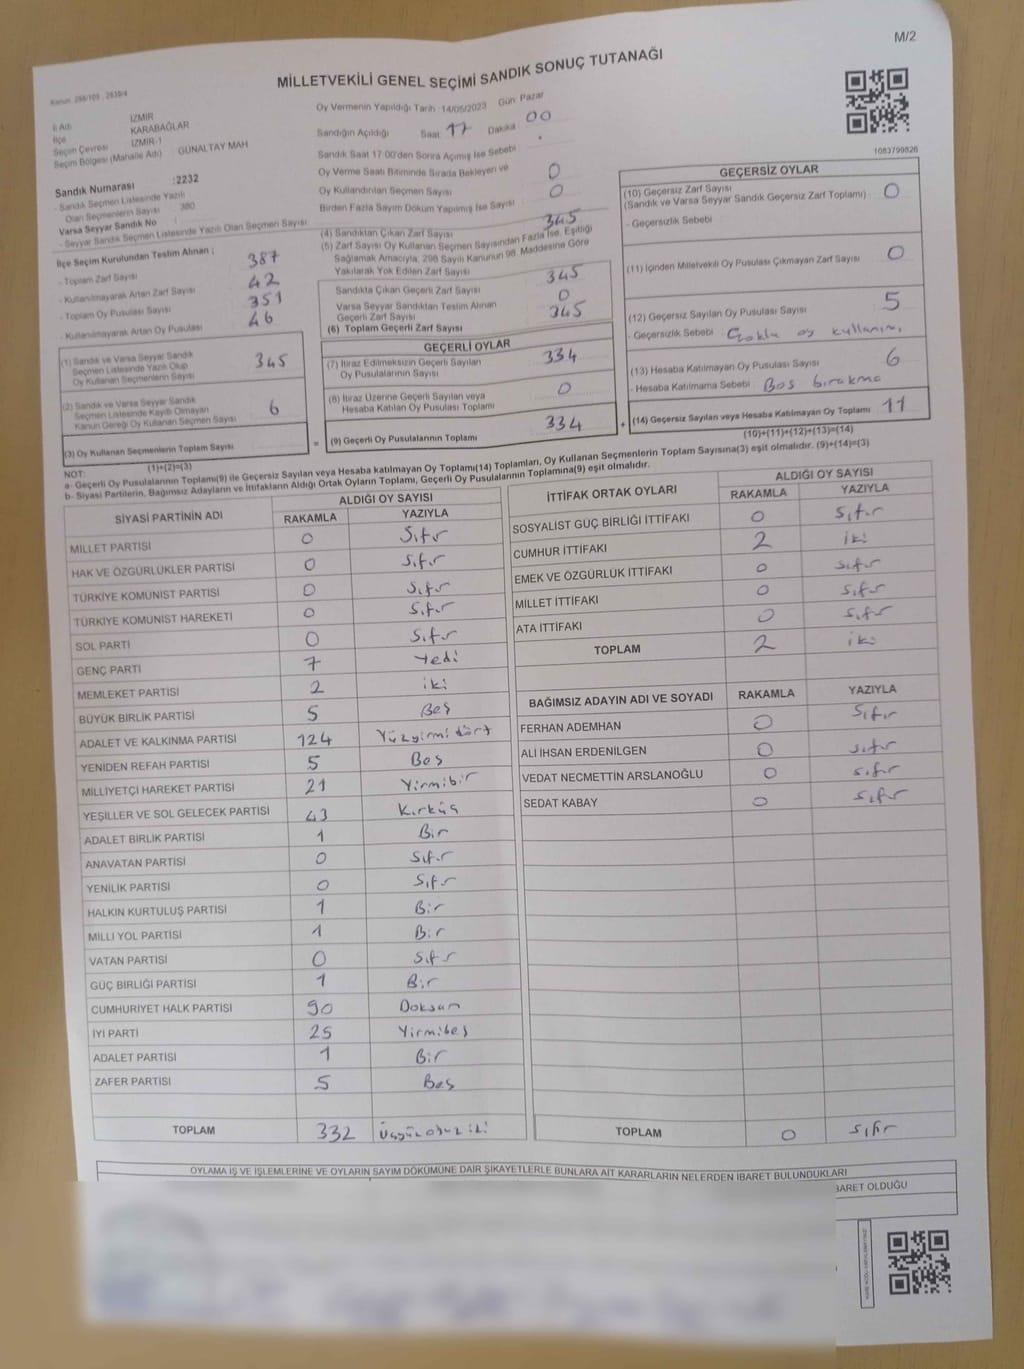 M/2
MİLLETVEKİLİ GENEL SEÇİMİ SANDIK SONUÇ TUTANAĞI
Kanun: 298/105 , 2839/4
İl Adı İZMİR
İlçe KARABAĞLAR
Seçim Çevresi İZMİR-1
Seçim Bölgesi (Mahalle Adı) GÜNALTAY MAH
Sandık Numarası :2232
- Sandık Seçmen Listesinde Yazılı
Olan Seçmenlerin Sayısı : 380
Varsa Seyyar Sandık No :
- Seyyar Sandık Seçmen Listesinde Yazılı Olan Seçmen Sayısı
İlçe Seçim Kurulundan Teslim Alınan ;
- Toplam Zarf Sayısı 387
- Kullanılmayarak Artan Zarf Sayısı 42
- Toplam Oy Pusulası Sayısı 351
- Kullanılmayarak Artan Oy Pusulası 46
(1) Sandık ve Varsa Seyyar Sandık
Seçmen Listesinde Yazılı Olup
Oy Kullanan Seçmenlerin Sayısı 345
(2) Sandık ve Varsa Seyyar Sandık
Seçmen Listesinde Kayıtlı Olmayan
Kanun Gereği Oy Kullanan Seçmen Sayısı 6
(3) Oy Kullanan Seçmenlerin Toplam Sayısı
(1)+(2)=(3)
Oy Vermenin Yapıldığı Tarih :14/05/2023 Gün: Pazar
Sandığın Açıldığı Saat 17 Dakika 00
Sandık Saat 17:00'den Sonra Açılmış İse Sebebi :
Oy Verme Saati Bitiminde Sırada Bekleyen ve
Oy Kullandırılan Seçmen Sayısı 0
Birden Fazla Sayım Döküm Yapılmış İse Sayısı : 0
(4) Sandıktan Çıkan Zarf Sayısı 345
(5) Zarf Sayısı Oy Kullanan Seçmen Sayısından Fazla İse, Eşitliği
Sağlamak Amacıyla, 298 Sayılı Kanunun 98. Maddesine Göre
Yakılarak Yok Edilen Zarf Sayısı
Sandıkta Çıkan Geçerli Zarf Sayısı 345
Varsa Seyyar Sandıktan Teslim Alınan
Geçerli Zarf Sayısı 0
(6) Toplam Geçerli Zarf Sayısı 345
GEÇERLİ OYLAR
(7) İtiraz Edilmeksizin Geçerli Sayılan
Oy Pusulalarının Sayısı 334
(8) İtiraz Üzerine Geçerli Sayılan veya
Hesaba Katılan Oy Pusulası Toplamı 0
= (9) Geçerli Oy Pusulalarının Toplamı 334 +
1083799826
GEÇERSİZ OYLAR
(10) Geçersiz Zarf Sayısı
(Sandık ve Varsa Seyyar Sandık Geçersiz Zarf Toplamı) 0
- Geçersizlik Sebebi :
(11) İçinden Milletvekili Oy Pusulası Çıkmayan Zarf Sayısı 0
(12) Geçersiz Sayılan Oy Pusulası Sayısı : 5
- Geçersizlik Sebebi : Çoklu oy kullanımı
(13) Hesaba Katılmayan Oy Pusulası Sayısı 6
- Hesaba Katılmama Sebebi : Boş bırakma
(14) Geçersiz Sayılan veya Hesaba Katılmayan Oy Toplamı 11
(10)+(11)+(12)+(13)=(14)
NOT:
a- Geçerli Oy Pusulalarının Toplamı(9) ile Geçersiz Sayılan veya Hesaba katılmayan Oy Toplamı(14) Toplamları, Oy Kullanan Seçmenlerin Toplam Sayısına(3) eşit olmalıdır. (9)+(14)=(3)
b- Siyasi Partilerin, Bağımsız Adayların ve İttifakların Aldığı Ortak Oyların Toplamı, Geçerli Oy Pusulalarının Toplamına(9) eşit olmalıdır.
SİYASİ PARTİNİN ADI ALDIĞI OY SAYISI
RAKAMLA YAZIYLA
MİLLET PARTİSİ 0 Sıfır
HAK VE ÖZGÜRLÜKLER PARTİSİ 0 Sıfır
TÜRKİYE KOMÜNİST PARTİSİ 0 Sıfır
TÜRKİYE KOMÜNİST HAREKETİ 0 Sıfır
SOL PARTİ 0 Sıfır
GENÇ PARTİ 7 Yedi
MEMLEKET PARTİSİ 2 iki
BÜYÜK BİRLİK PARTİSİ 5 Beş
ADALET VE KALKINMA PARTİSİ 124 Yüzyirmi dört
YENİDEN REFAH PARTİSİ 5 Beş
MİLLİYETÇİ HAREKET PARTİSİ 21 Yirmibir
YEŞİLLER VE SOL GELECEK PARTİSİ 43 Kırküç
ADALET BİRLİK PARTİSİ 1 Bir
ANAVATAN PARTİSİ 0 Sıfır
YENİLİK PARTİSİ 0 Sıfır
HALKIN KURTULUŞ PARTİSİ 1 Bir
MİLLİ YOL PARTİSİ 1 Bir
VATAN PARTİSİ 0 Sıfır
GÜÇ BİRLİĞİ PARTİSİ 1 Bir
CUMHURİYET HALK PARTİSİ 90 Doksan
İYİ PARTİ 25 Yirmibeş
ADALET PARTİSİ 1 Bir
ZAFER PARTİSİ 5 Beş
TOPLAM 332 Üçyüzotuz iki
İTTİFAK ORTAK OYLARI ALDIĞI OY SAYISI
RAKAMLA YAZIYLA
SOSYALİST GÜÇ BİRLİĞİ İTTİFAKI 0 Sıfır
CUMHUR İTTİFAKI 2 iki
EMEK VE ÖZGÜRLÜK İTTİFAKI 0 sıfır
MİLLET İTTİFAKI 0 sıfır
ATA İTTİFAKI 0 sıfır
TOPLAM 2 iki
BAĞIMSIZ ADAYIN ADI VE SOYADI RAKAMLA YAZIYLA
FERHAN ADEMHAN 0 Sıfır
ALİ İHSAN ERDENİLGEN 0 sıfır
VEDAT NECMETTİN ARSLANOĞLU 0 sıfır
SEDAT KABAY 0 sıfır
TOPLAM 0 sıfır
OYLAMA İŞ VE İŞLEMLERİNE VE OYLARIN SAYIM DÖKÜMÜNE DAİR ŞİKAYETLERLE BUNLARA AİT KARARLARIN NELERDEN İBARET BULUNDUKLARI
BARET OLDUĞU